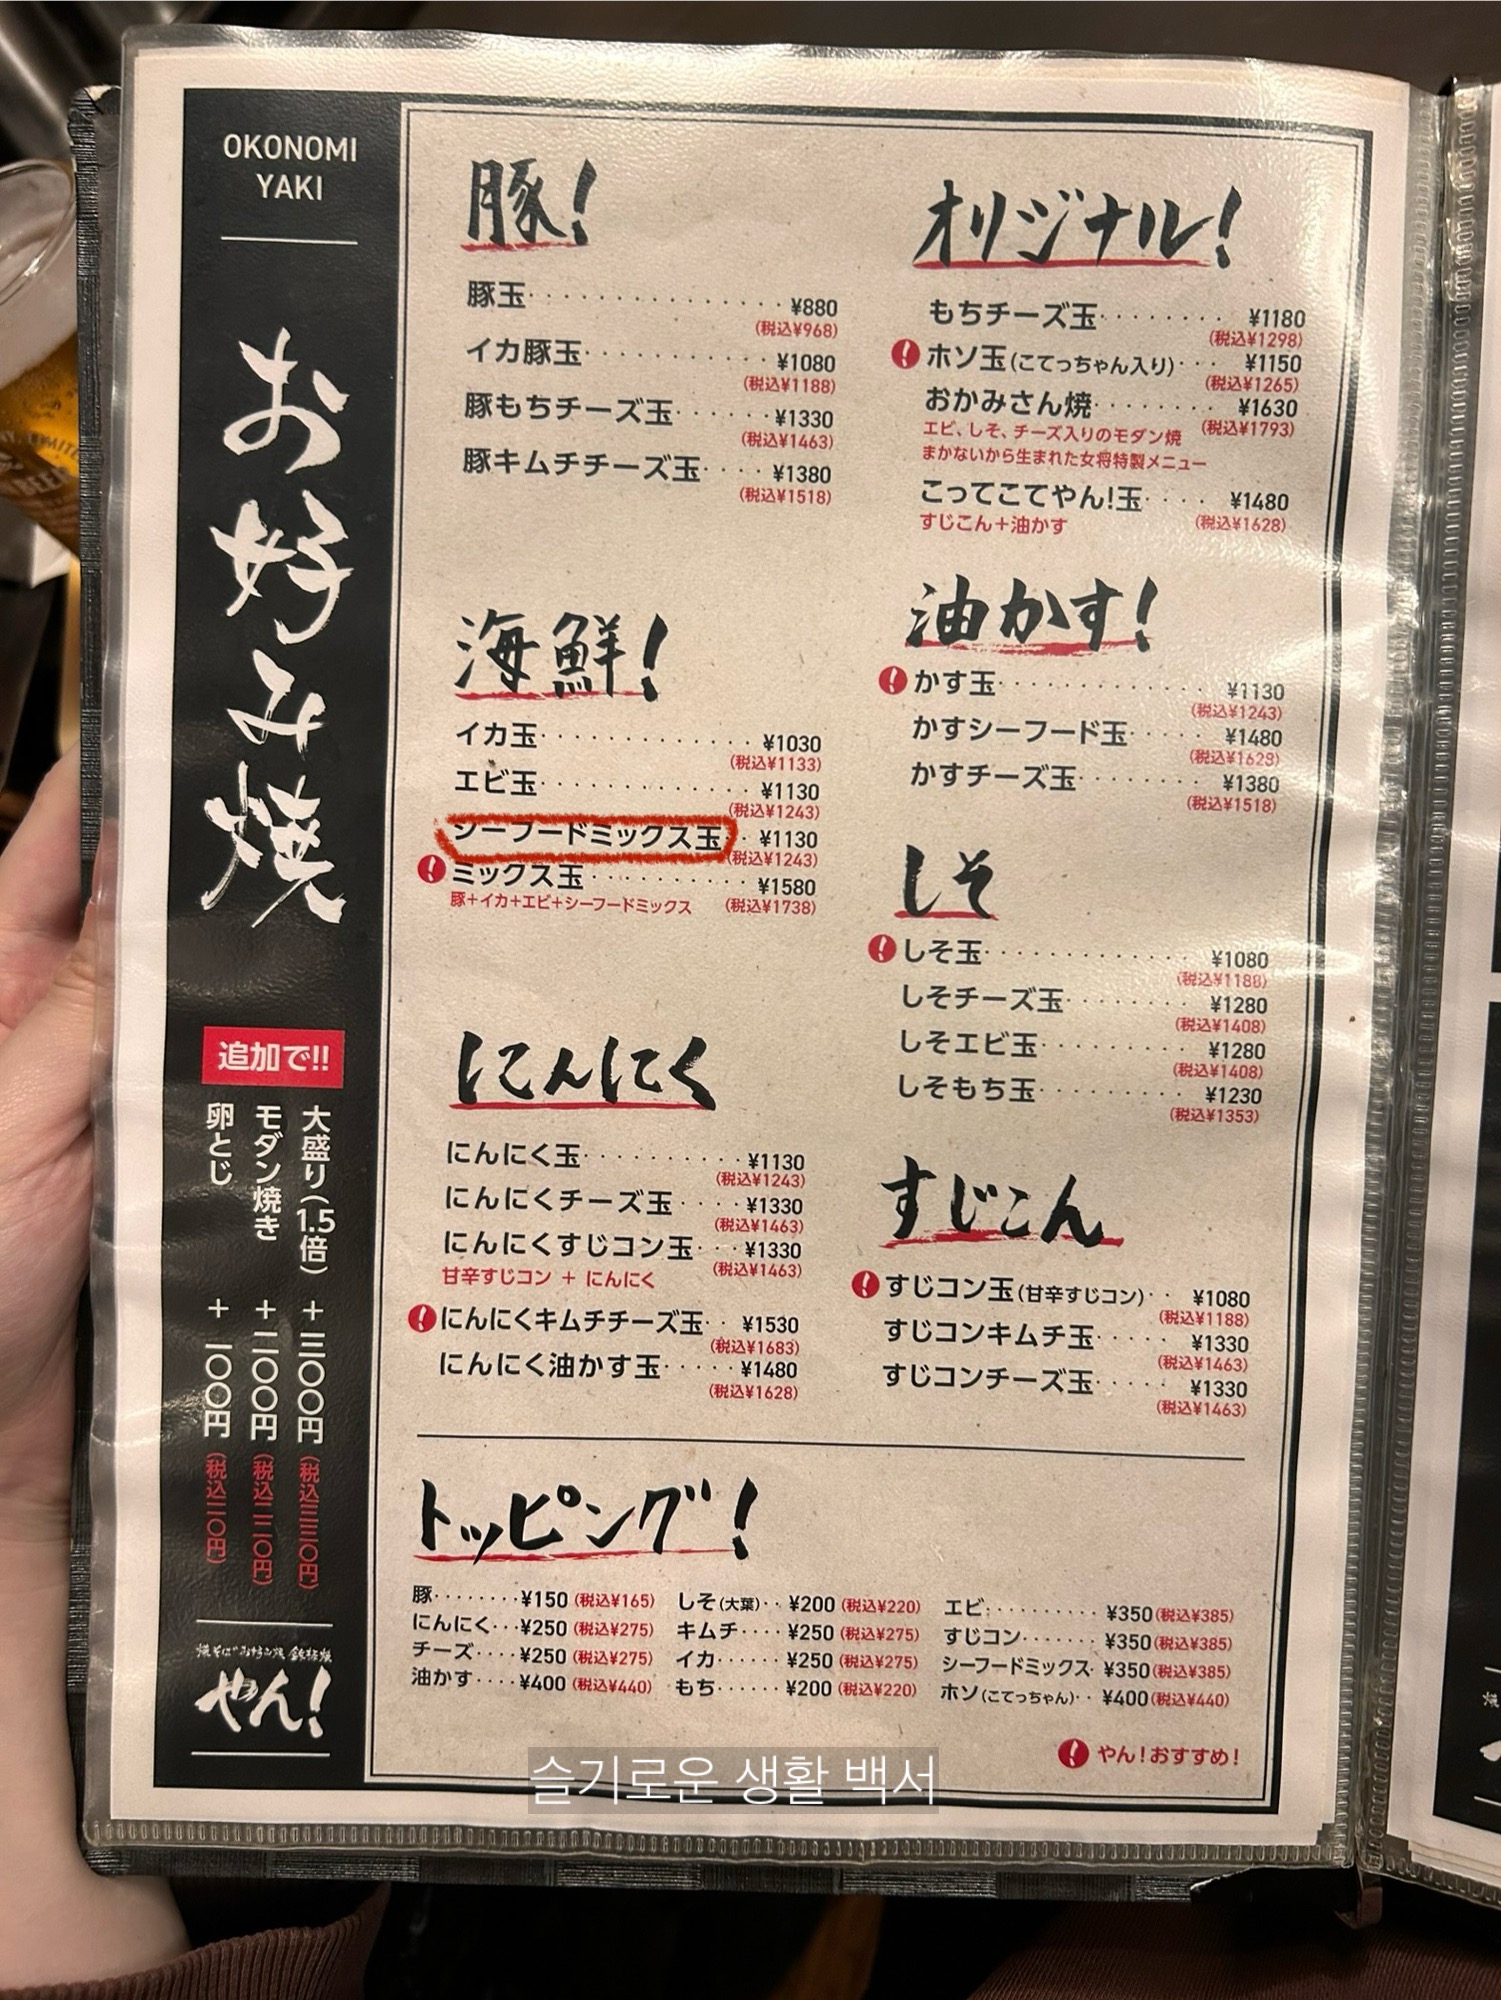 OKONOMI
YAKI
お好み焼
追加で!!
大盛り(1.5倍) +三〇〇円 (税込三三〇円)
モダン焼き +二〇〇円 (税込二二〇円)
卵とじ +一〇〇円 (税込一一〇円)
焼そば お好み焼 鉄板焼
やん!
豚!
豚玉 ¥880
(税込¥968)
イカ豚玉 ¥1080
(税込¥1188)
豚もちチーズ玉 ¥1330
(税込¥1463)
豚キムチチーズ玉 ¥1380
(税込¥1518)
海鮮!
イカ玉 ¥1030
(税込¥1133)
エビ玉 ¥1130
(税込¥1243)
シーフードミックス玉 ¥1130
(税込¥1243)
! ミックス玉 ¥1580
豚+イカ+エビ+シーフードミックス (税込¥1738)
にんにく
にんにく玉 ¥1130
(税込¥1243)
にんにくチーズ玉 ¥1330
(税込¥1463)
にんにくすじコン玉 ¥1330
甘辛すじコン + にんにく (税込¥1463)
! にんにくキムチチーズ玉 ¥1530
(税込¥1683)
にんにく油かす玉 ¥1480
(税込¥1628)
オリジナル!
もちチーズ玉 ¥1180
(税込¥1298)
! ホソ玉(こてっちゃん入り) ¥1150
(税込¥1265)
おかみさん焼 ¥1630
エビ、しそ、チーズ入りのモダン焼 (税込¥1793)
まかないから生まれた女将特製メニュー
こってこてやん!玉 ¥1480
すじこん+油かす (税込¥1628)
油かす!
! かす玉 ¥1130
(税込¥1243)
かすシーフード玉 ¥1480
(税込¥1628)
かすチーズ玉 ¥1380
(税込¥1518)
しそ
! しそ玉 ¥1080
(税込¥1188)
しそチーズ玉 ¥1280
(税込¥1408)
しそエビ玉 ¥1280
(税込¥1408)
しそもち玉 ¥1230
(税込¥1353)
すじこん
! すじコン玉(甘辛すじコン) ¥1080
(税込¥1188)
すじコンキムチ玉 ¥1330
(税込¥1463)
すじコンチーズ玉 ¥1330
(税込¥1463)
トッピング!
豚 ¥150 (税込¥165)
にんにく ¥250 (税込¥275)
チーズ ¥250 (税込¥275)
油かす ¥400 (税込¥440)
しそ(大葉) ¥200 (税込¥220)
キムチ ¥250 (税込¥275)
イカ ¥250 (税込¥275)
もち ¥200 (税込¥220)
エビ ¥350(税込¥385)
すじコン ¥350(税込¥385)
シーフードミックス ¥350(税込¥385)
ホソ(こてっちゃん) ¥400(税込¥440)
! やん!おすすめ!
슬기로운 생활 백서